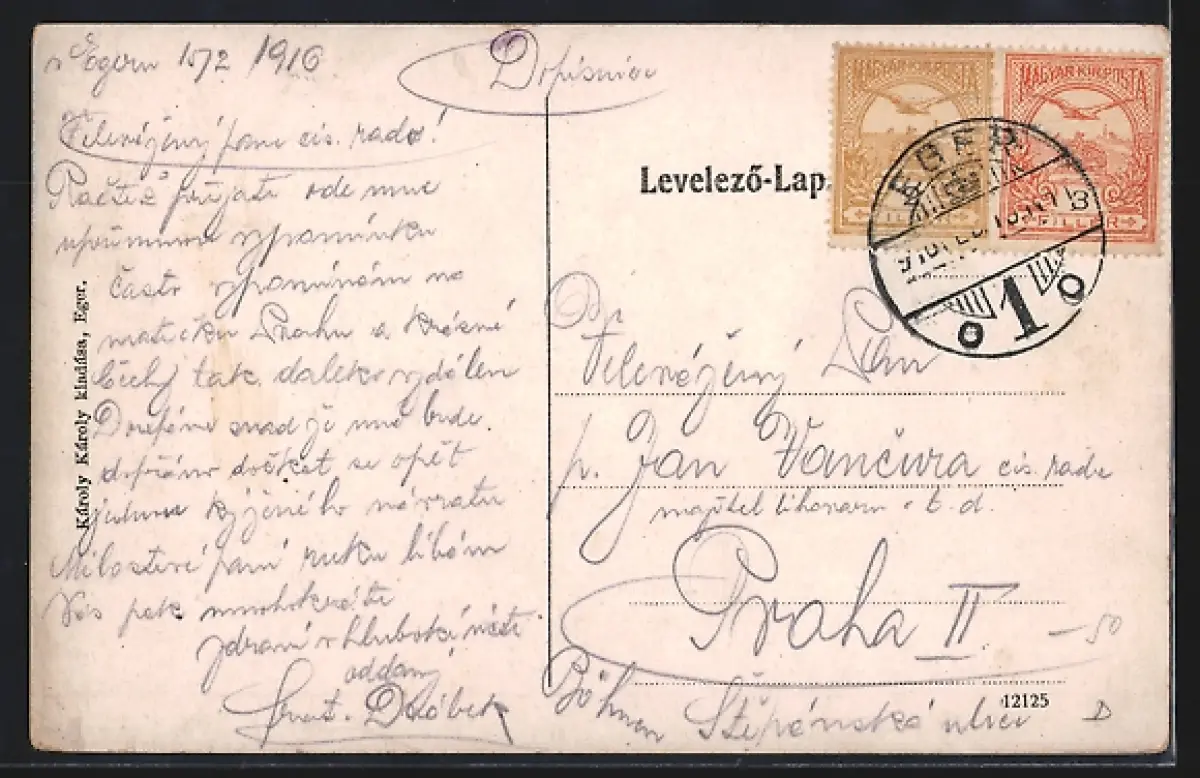 v Egeru 15/2 1916
Velevážený pane cís. rado!
Račtež přijati ode mne
upřímnou vzpomínku
často vzpomínám na
matičku Prahu a krásné
Čechy tak daleko vzdálen
Doufáme snad že mně bude
dopřáno dočkat se opět
jednou kýženého návratu
Milostivé paní ruku líbám
Vás pak mnohokráte
zdraví v hluboké úctě
oddaný
Drábek
Károly Károly kiadása, Eger.
Dopisnice
Levelező-Lap.
MAGYAR KIR. POSTA
FILLÉR
MAGYAR KIR. POSTA
FILLÉR
EGER
1
Velevážený Pan
p. Jan Vančura cís. rada
majitel lihovaru a t. d.
Praha II.
-50
Böhmen Štěpánská ulice
12125
D